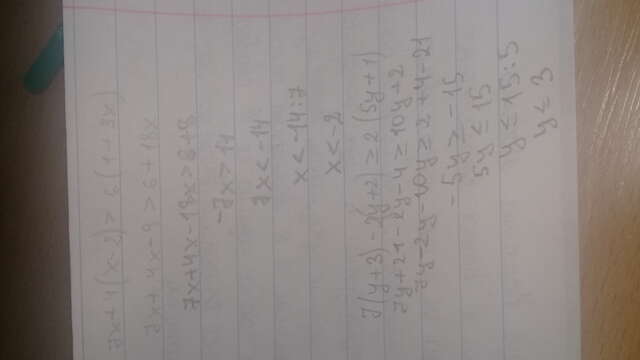 7x+4(x-2)> 6(1+3x)
7x+4x-8>6+18x
7x+4x-18x>6+8
-7x>14
7x<-14
x<-14:7
x<-2
7(y+3)-2(y+2)≥2(5y+1)
7y+21-2y-4≥10y+2
7y-2y-10y≥2+4-21
-5y≥-15
5y≤15
y≤15:5
y≤3